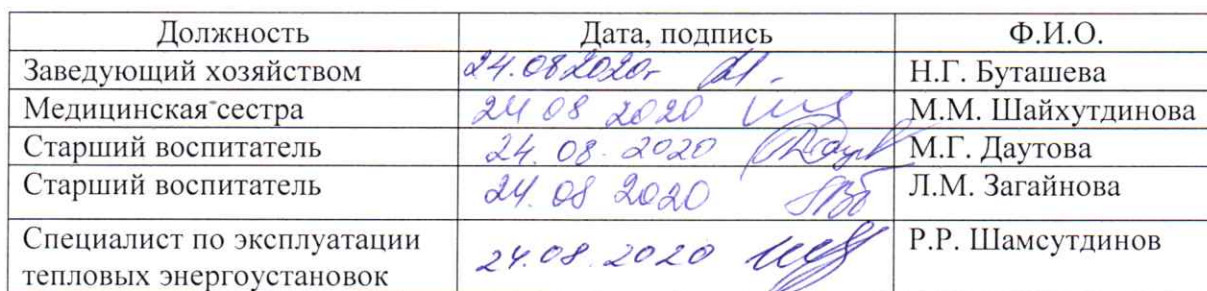 Должность Дата, подпись Ф.И.О.
Заведующий хозяйством 24.08.2020г Н.Г. Буташева
Медицинская сестра 24 08 2020 М.М. Шайхутдинова
Старший воспитатель 24. 08. 2020 М.Г. Даутова
Старший воспитатель 24. 08 2020 Л.М. Загайнова
Специалист по эксплуатации 24.08.2020 Р.Р. Шамсутдинов
тепловых энергоустановок